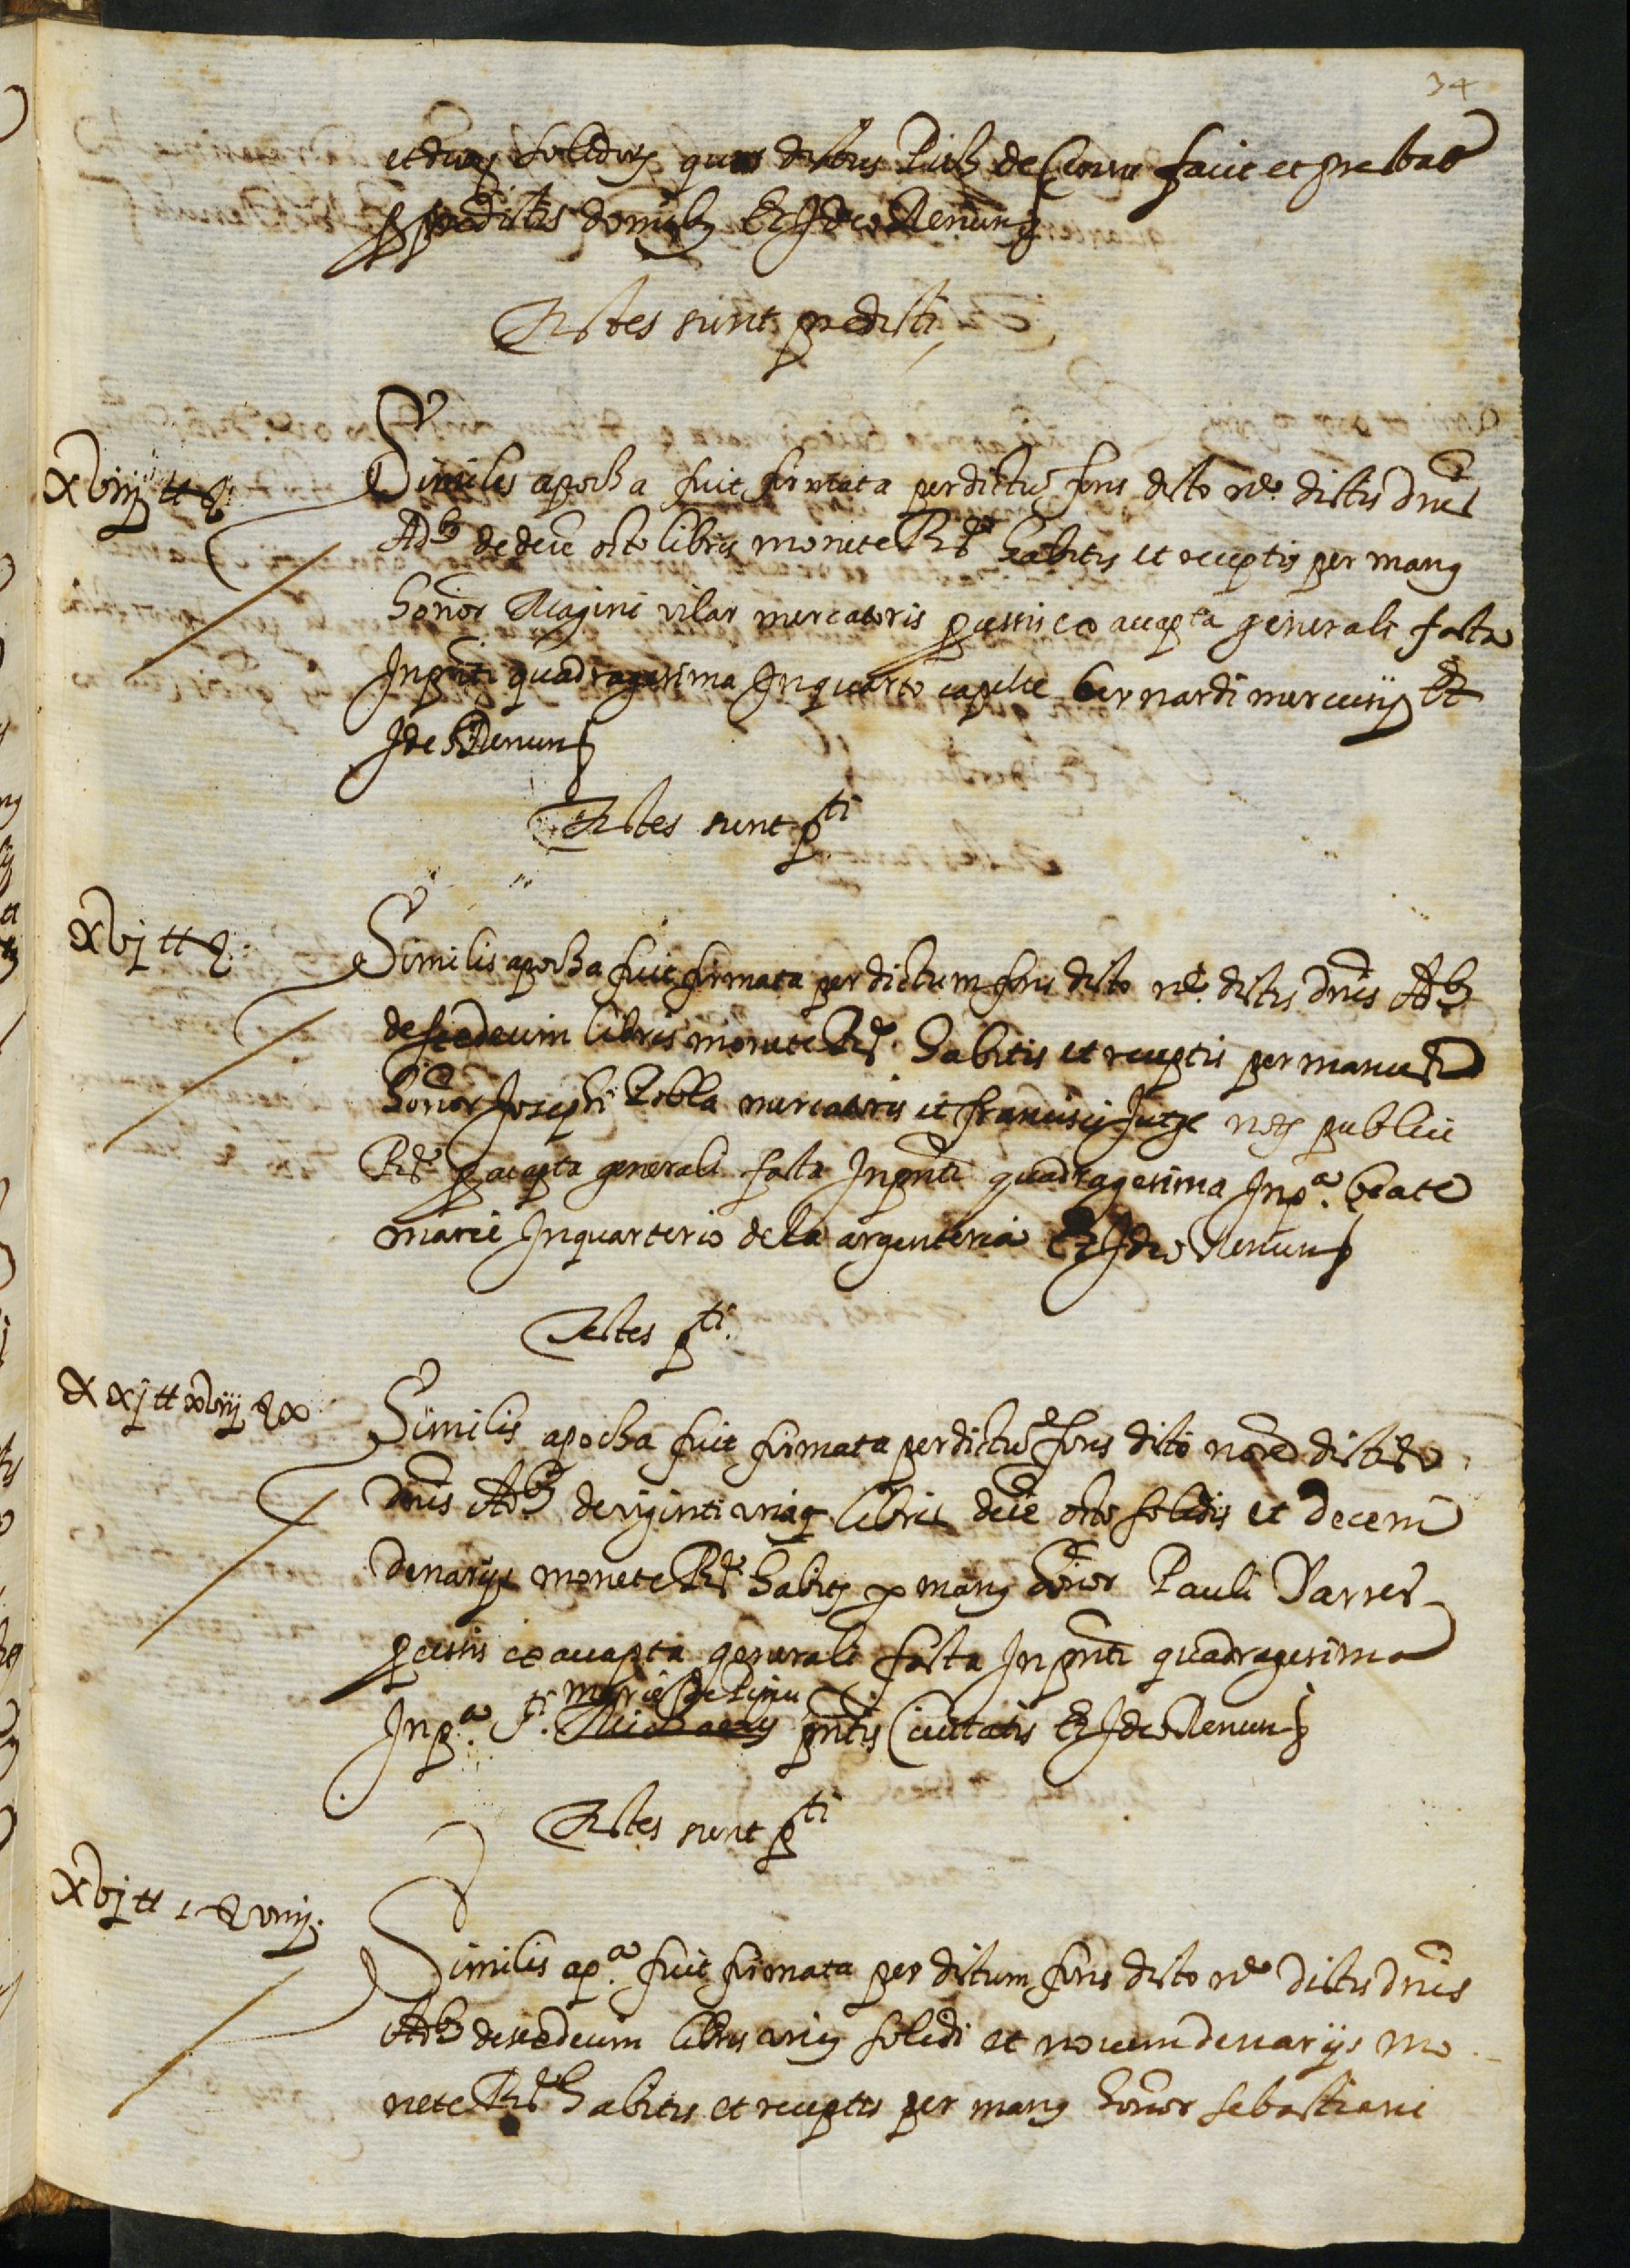 34
et duos solidos quos dictus Pub de Corro facit et prestat
p predictis domibus Et Ideo Renun
Testes sunt predicti
xviij tt s.
Similis apocha fuit firmata per dictu fons dicto no.e dictis dnis
Adb de dece octo libris monete Bne habitis et receptis per manus
honor Magini vilar mercatoris p ex accapta generali facta
In pnti quadragesima In quarto capelle bernardi mercusij Et
Ideo Renun
Testes sunt pti
xvj tt s.
Similis apocha fuit firmata per dictum fons dicto no.e dictis dnis Adb
de sexdecim libris monete Bne habitis et receptis per manus
honor Josephi Robla mercatoris et francisci Jutge notj publici
Bne p accapta generali facta In pnti quadragesima In pa. beate
marie In quarterio de la argenteria Et Ideo Renun
Testes pti.
xxj tt xviij s x
Similis apocha fuit firmata per dictu fons dicto no.e dictis
dnis Adb de viginti unaq libris dece octo solidis et decem
denarijs monete Bne habitis p manus honor Pauli Darrer
p ex accapta generali facta In pnti quadragesima
marie de Pinu
In pa. St. Michaelis pntis Civitatis Et Ideo Renun
Testes sunt pti
xvj tt 1 s viiij.
Similis apa. fuit firmata per dictum fons dicto no.e dictis dnis
Adb de sexdecim libris uniq solidi et novem denarijs mo
nete Bne habitis et receptis per manus honor sebastiani